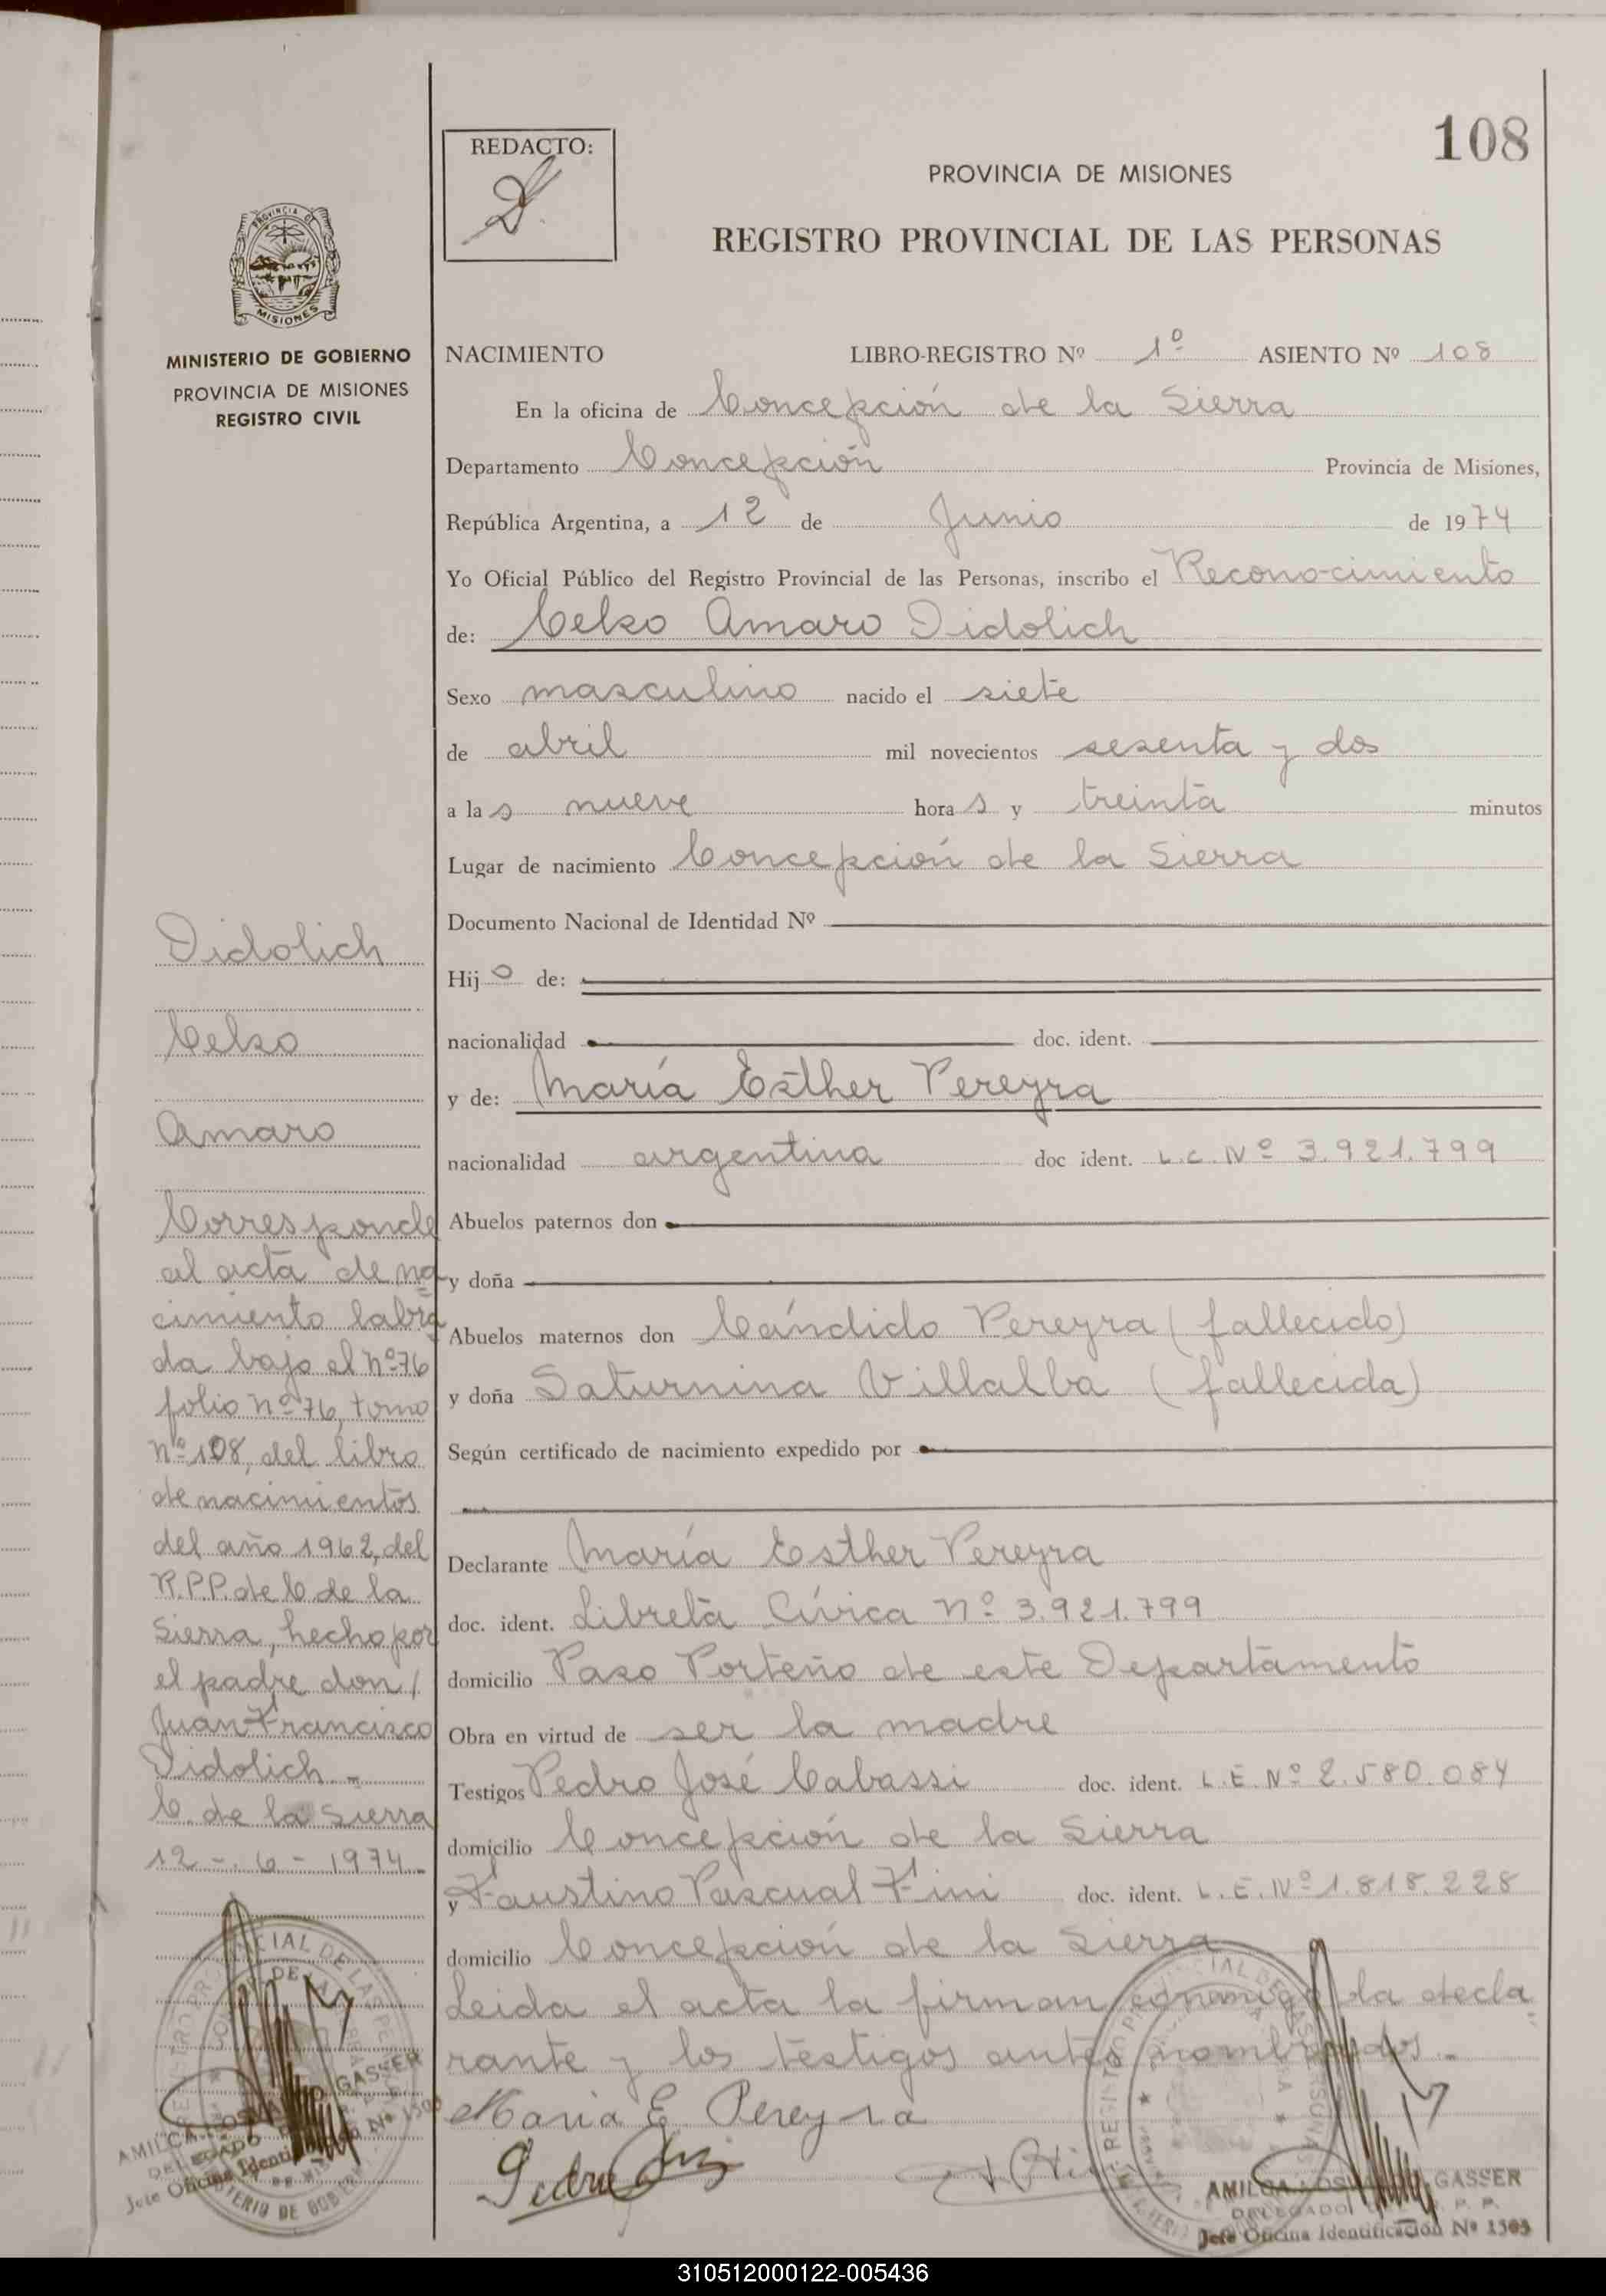 108
REDACTO:
PROVINCIA DE MISIONES
REGISTRO PROVINCIAL DE LAS PERSONAS
PROVINCIA DE
MISIONES
MINISTERIO DE GOBIERNO
PROVINCIA DE MISIONES
REGISTRO CIVIL
NACIMIENTO LIBRO-REGISTRO Nº 1º ASIENTO Nº 108
En la oficina de Concepción de la Sierra
Departamento Concepción Provincia de Misiones,
República Argentina, a 12 de Junio de 1974
Yo Oficial Público del Registro Provincial de las Personas, inscribo el Reconocimiento
de: Celso Amaro Didolich
Sexo masculino nacido el siete
de abril mil novecientos sesenta y dos
a las nueve horas y treinta minutos
Lugar de nacimiento Concepción de la Sierra
Documento Nacional de Identidad Nº
Hijo de:
nacionalidad doc. ident.
y de: María Esther Pereyra
nacionalidad argentina doc ident. L.C. Nº 3.921.799
Abuelos paternos don
y doña
Abuelos maternos don Cándido Pereyra (fallecido)
y doña Saturnina Villalba (fallecida)
Según certificado de nacimiento expedido por
Declarante María Esther Pereyra
doc. ident. Libreta Cívica nº 3.921.799
domicilio Paso Porteño de este Departamento
Obra en virtud de ser la madre
Testigos Pedro José Cabassi doc. ident. L.E. Nº 2.580.084
domicilio Concepción de la Sierra
y Faustino Pascual Fini doc. ident. L.E. Nº 1.818.228
domicilio Concepción de la Sierra
Leida el acta la firman conmigo la decla
rante y los testigos antes nombrados.-
Maria E. Pereyra
Didolich
Celso
Amaro
Corresponde
al acta de na
cimiento labra
da bajo el nº 76
folio nº 76, tomo
nº 108, del libro
de nacimientos
del año 1962, del
R.P.P. de C. de la
Sierra, hecho por
el padre don /
Juan Francisco
Didolich.-
C. de la Sierra
12-6-1974
GASSER
DELEGADO
Jefe Oficina Identificación Nº 1505
GASSER
DELEGADO R. P. P.
Jefe Oficina Identificación Nº 1505
310512000122-005436